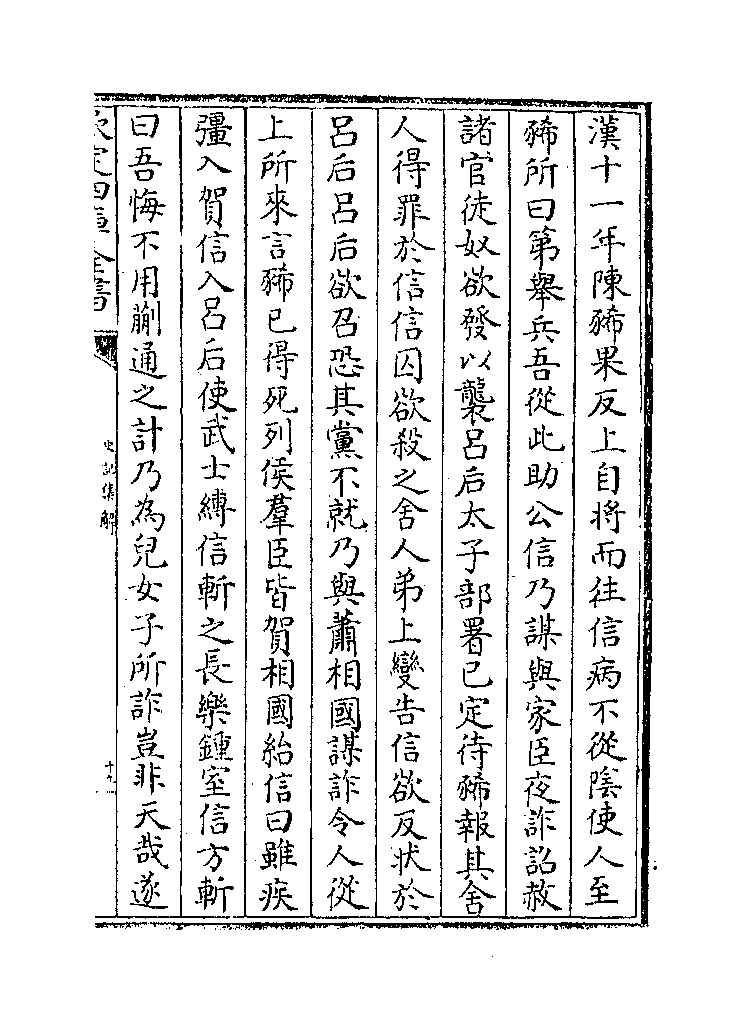 漢十一年陳豨果反上自將而往信病不從陰使人至
豨所曰第舉兵吾從此助公信乃謀與家臣夜詐詔赦
諸官徒奴欲發以襲呂后太子部署已定待豨報其舍
人得罪於信信囚欲殺之舍人弟上變告信欲反狀於
呂后呂后欲召恐其黨不就乃與蕭相國謀詐令人從
上所來言豨已得死列侯羣臣皆賀相國紿信曰雖疾
彊入賀信入呂后使武士縛信斬之長樂鍾室信方斬
曰吾悔不用蒯通之計乃為兒女子所詐豈非天哉遂
欽定四庫全書
史記集解
十九